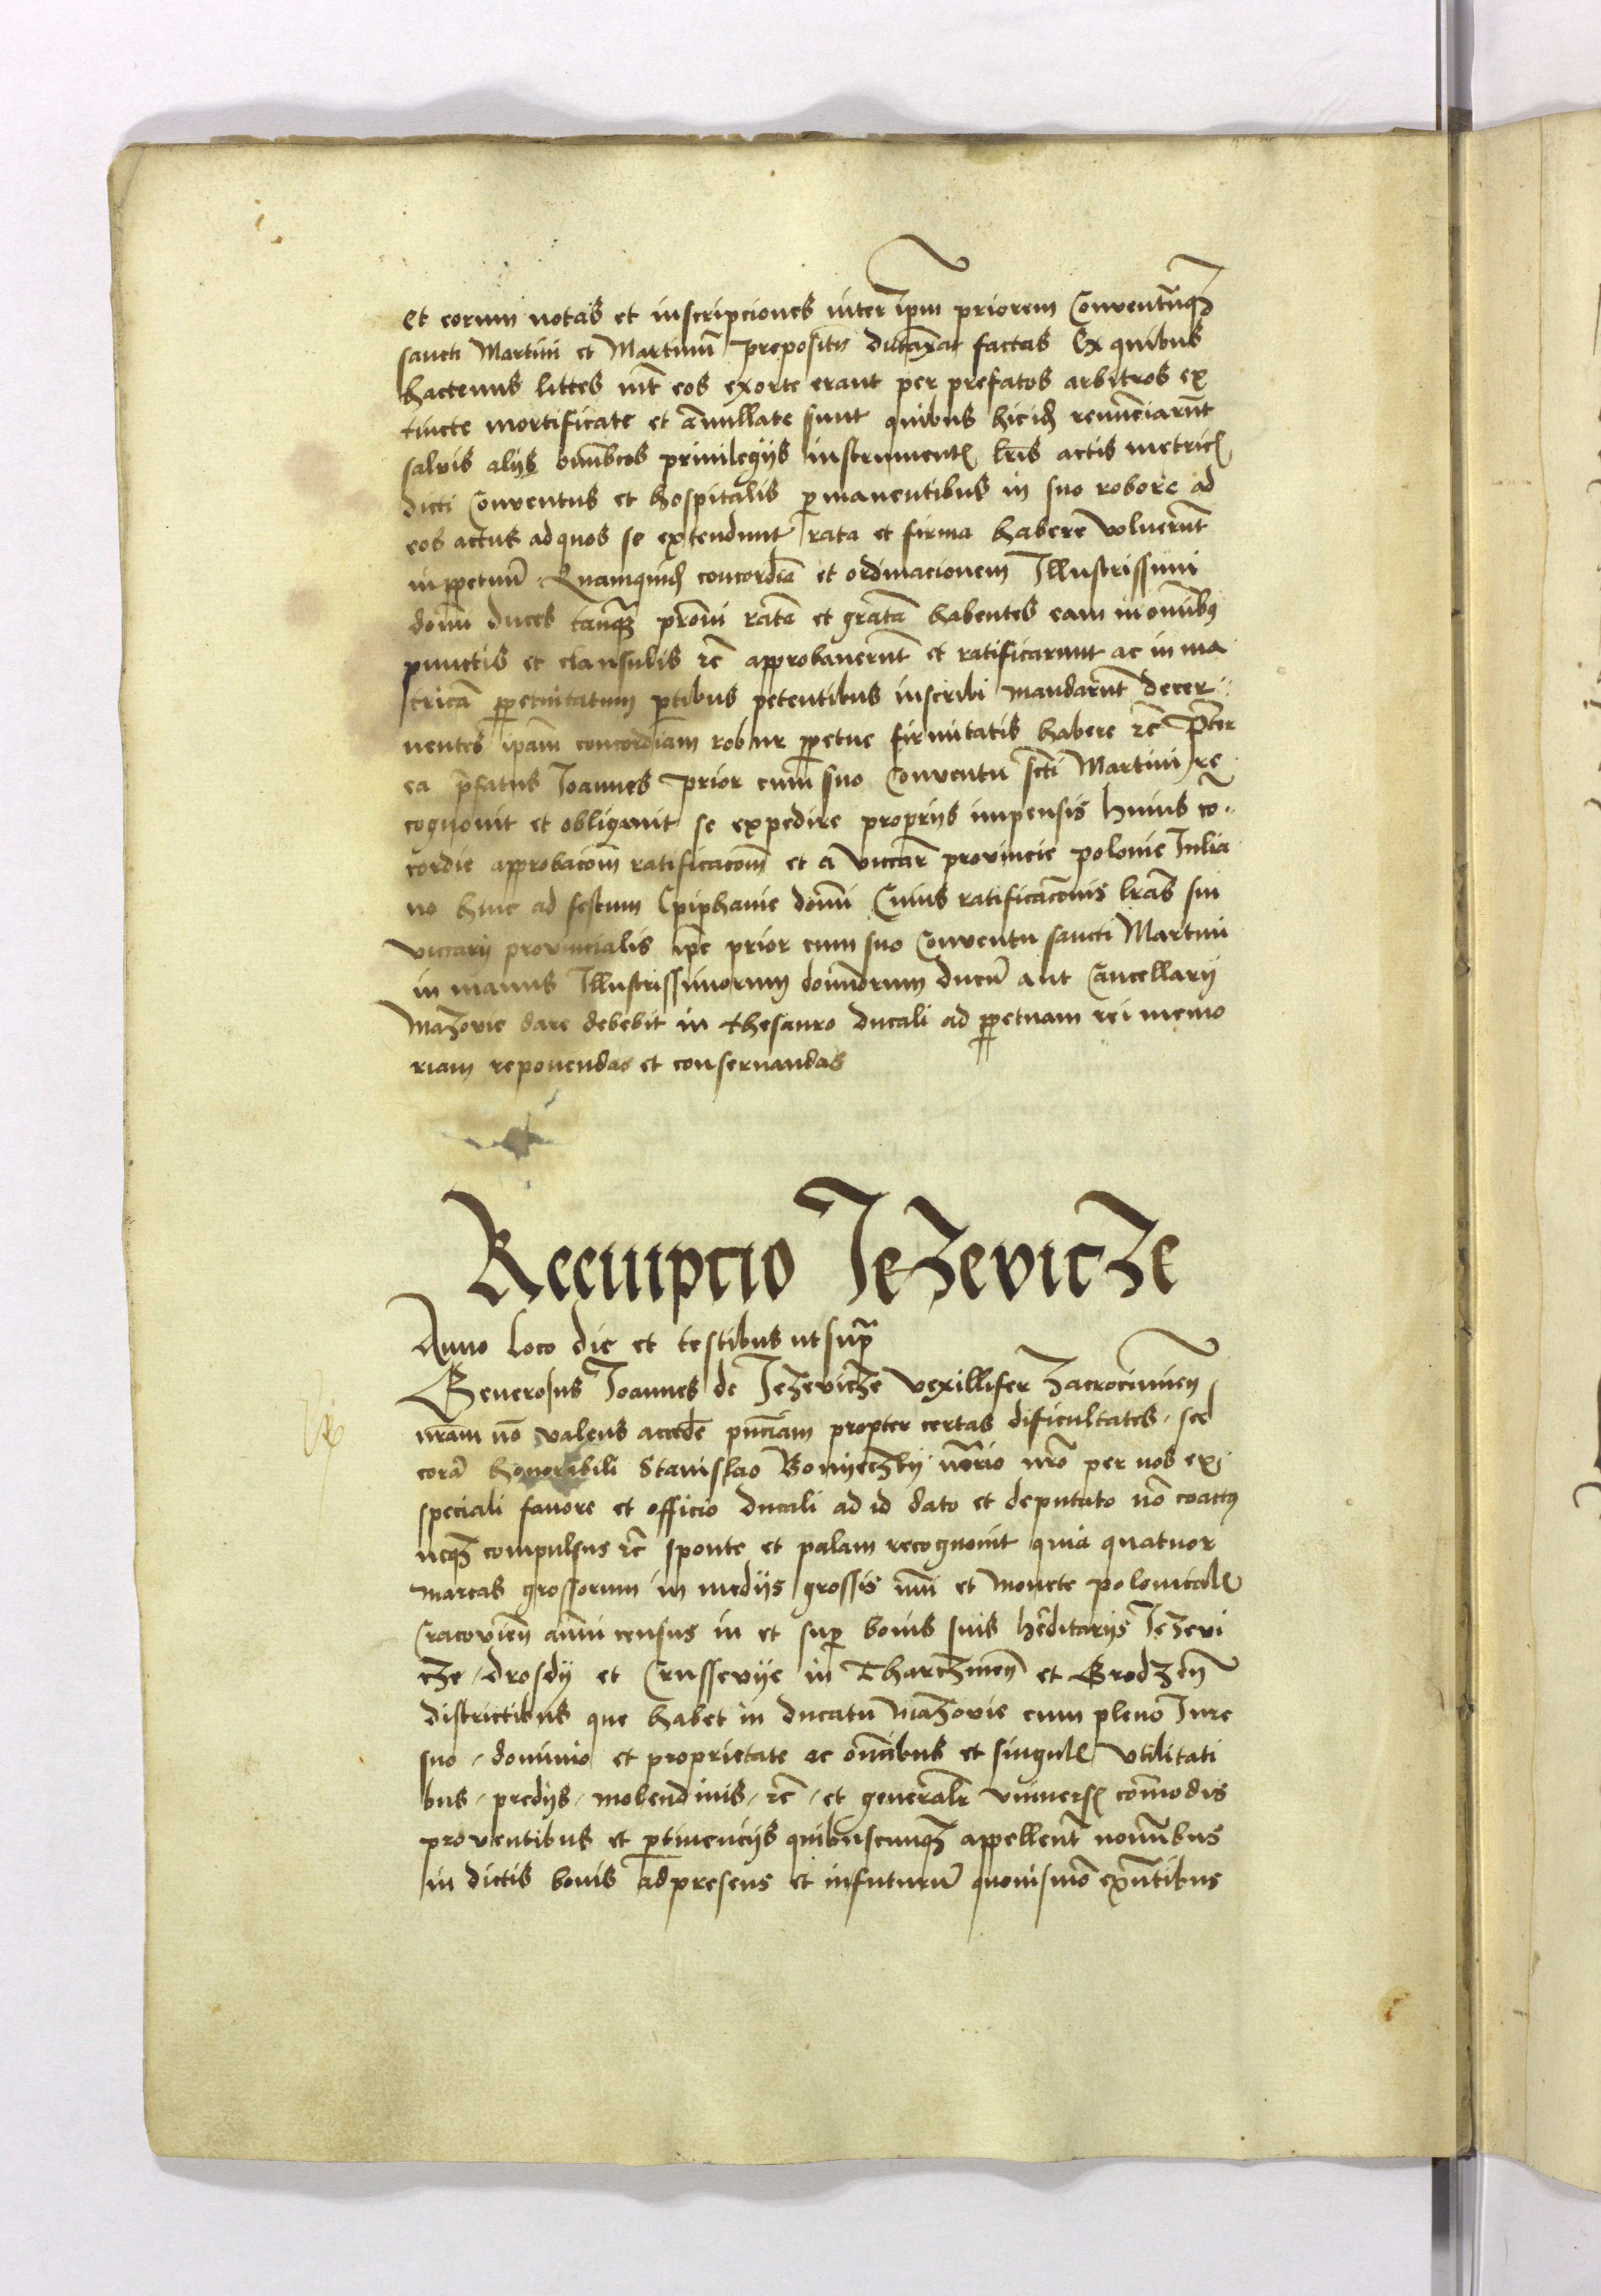 et eorum notas et inscripciones inter ip̄m priorem Conventūqꝫ
sancti Martini et Martinū prepositū dūtaxat factas Ex quibus
hactenus littes int̄ eos exorte erant per prefatos arbitros ex
tincte mortificate et ānullate sunt quibus hincinde renūciarūt
salvis alijs om̄ibus privilegijs instrumentꝭ lr̄is actis metricꝭ
dicti Conventus et hospitalis ꝑmanentibus in suo robore ad
eos actus ad quos se extendunt rata et firma habere voluerūt
inꝑpetuū Quamquidē concordiā et ordinacionem Illustrissimi
domī duces tanqꝫ ratā et gratā habentes eam in om̄ibꝰ
punctis et clausulis rc̄ approbaverūt et ratificarunt ac in ma
tricā ꝑpetuitatum ꝑtibus petentibus inscribi mandarūt decer-
nentes ipām concordiam robur ꝑpetue firmitatis habere rc̄ Preter
ea p̄fatus Joannes prior cum suo Conventu sct̄i Martini re
cognovit et obligavit se expedire proprijs impensis huius cō-
cordie approbacōm ratificacōm et a viccar̄ provincie polonie Julia
no hinc ad festum Epiphanie domī Cuius ratificacōnis lrās sui
viccarij provincialis ip̄e prior cum suo Conventu sancti Martini
in manus Illustrissimorum domīorum ducū aut Cancellarij
Mazovie dare debebit in thesauro ducali ad ꝑpetuam rei memo
riam reponendas et conservandas
Reempcio Jezevicze
Anno loco die et testibus ut supra
Generosus Joannes de Jezevicze vexillifer Zacrocimien̄
nrām nō valens accedē pn̄ciam propter certas dificultates, sed
corā honorabili Stanislao Bonijeczky nōrio nr̄o per nos ex
speciali favore et officio ducali ad id dato et deputato nō coactꝰ
neqꝫ compulsus rc̄ sponte et palam recognovit quia quatuor
marcas grossorum in medijs grossis nūi et monete polonicalꝭ
Cracovien̄ annui census in et suꝑ bonis suis hēditarijs Jezevi
cze, drosdy et Crussevye in Tharczinen̄ et Grodzen̄
districtibus que habet in ducatu Mazovie cum pleno Jure
suo, dominio et proprietate ac om̄ibus et singulꝭ utilitati
bus, predijs, molendinis, rc̄, et generalr̄ universꝭ cōmodis
proventibus et ꝑtinencijs quibuscunqꝫ appellent̄ nominibus
in dictis bonis ad presens et infuturū quovismō exn̄tibus